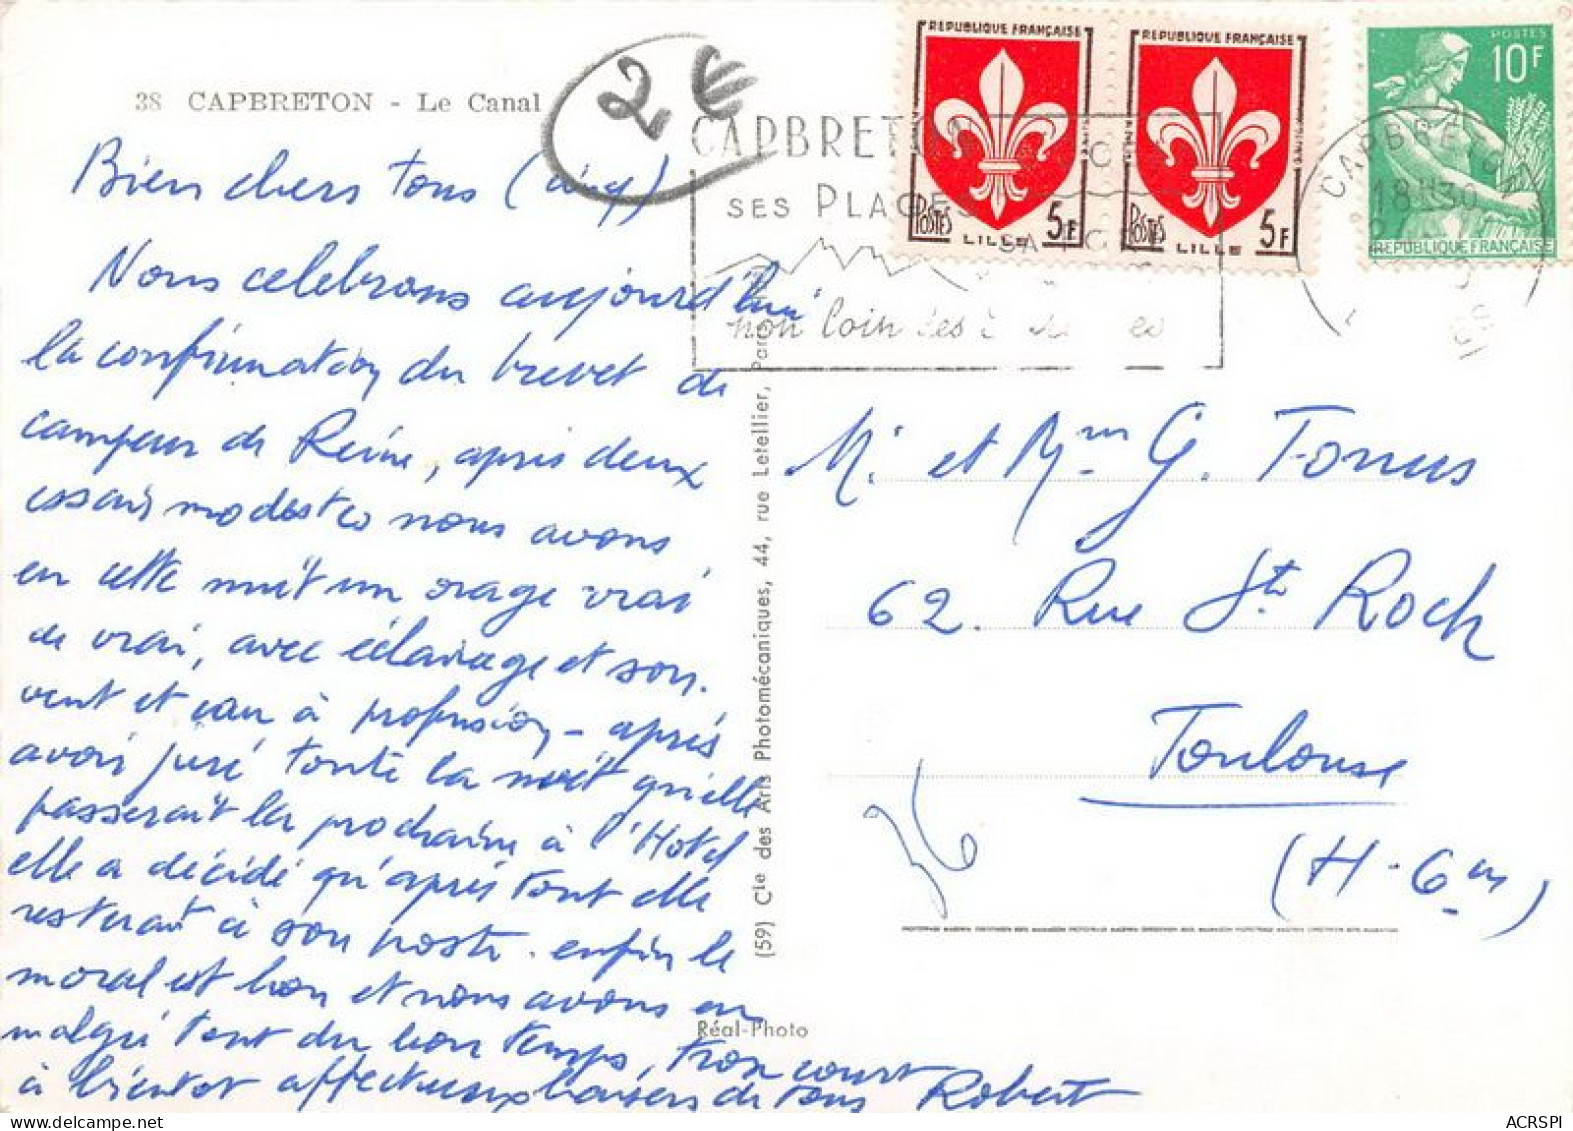 38 CAPBRETON - Le Canal
2 €
Bien chers tous (cinq)
Nous celebrons aujourd'hui
la confirmation du brevet de
campeur de Reine, apres deux
essais modestes nous avons
eu cette nuit un orage vrai
de vrai, avec éclairage et son.
vent et eau à profusion - après
avoir juré toute la nuit qu'elle
passerait la prochaine à l'Hotel
elle a décidé qu'après tout elle
resterait à son poste. enfin le
moral est bon et nous avons eu
malgré tout du bon temps, trop court
à bientot affectueux baisers de tous Robert
REPUBLIQUE FRANÇAISE
POSTES 5F
LILLE
REPUBLIQUE FRANÇAISE
POSTES 5F
LILLE
POSTES
10F
REPUBLIQUE FRANÇAISE
CAPBRETON
SES PLAGES
non loin des
CAPBRETON
18H30
M. et Mme G. Fonus
62. Rue St Roch
Toulouse
(H-Gne)
(59) Cie des Arts Photomécaniques, 44, rue Letellier, Paris
Réal-Photo
ACRSPI